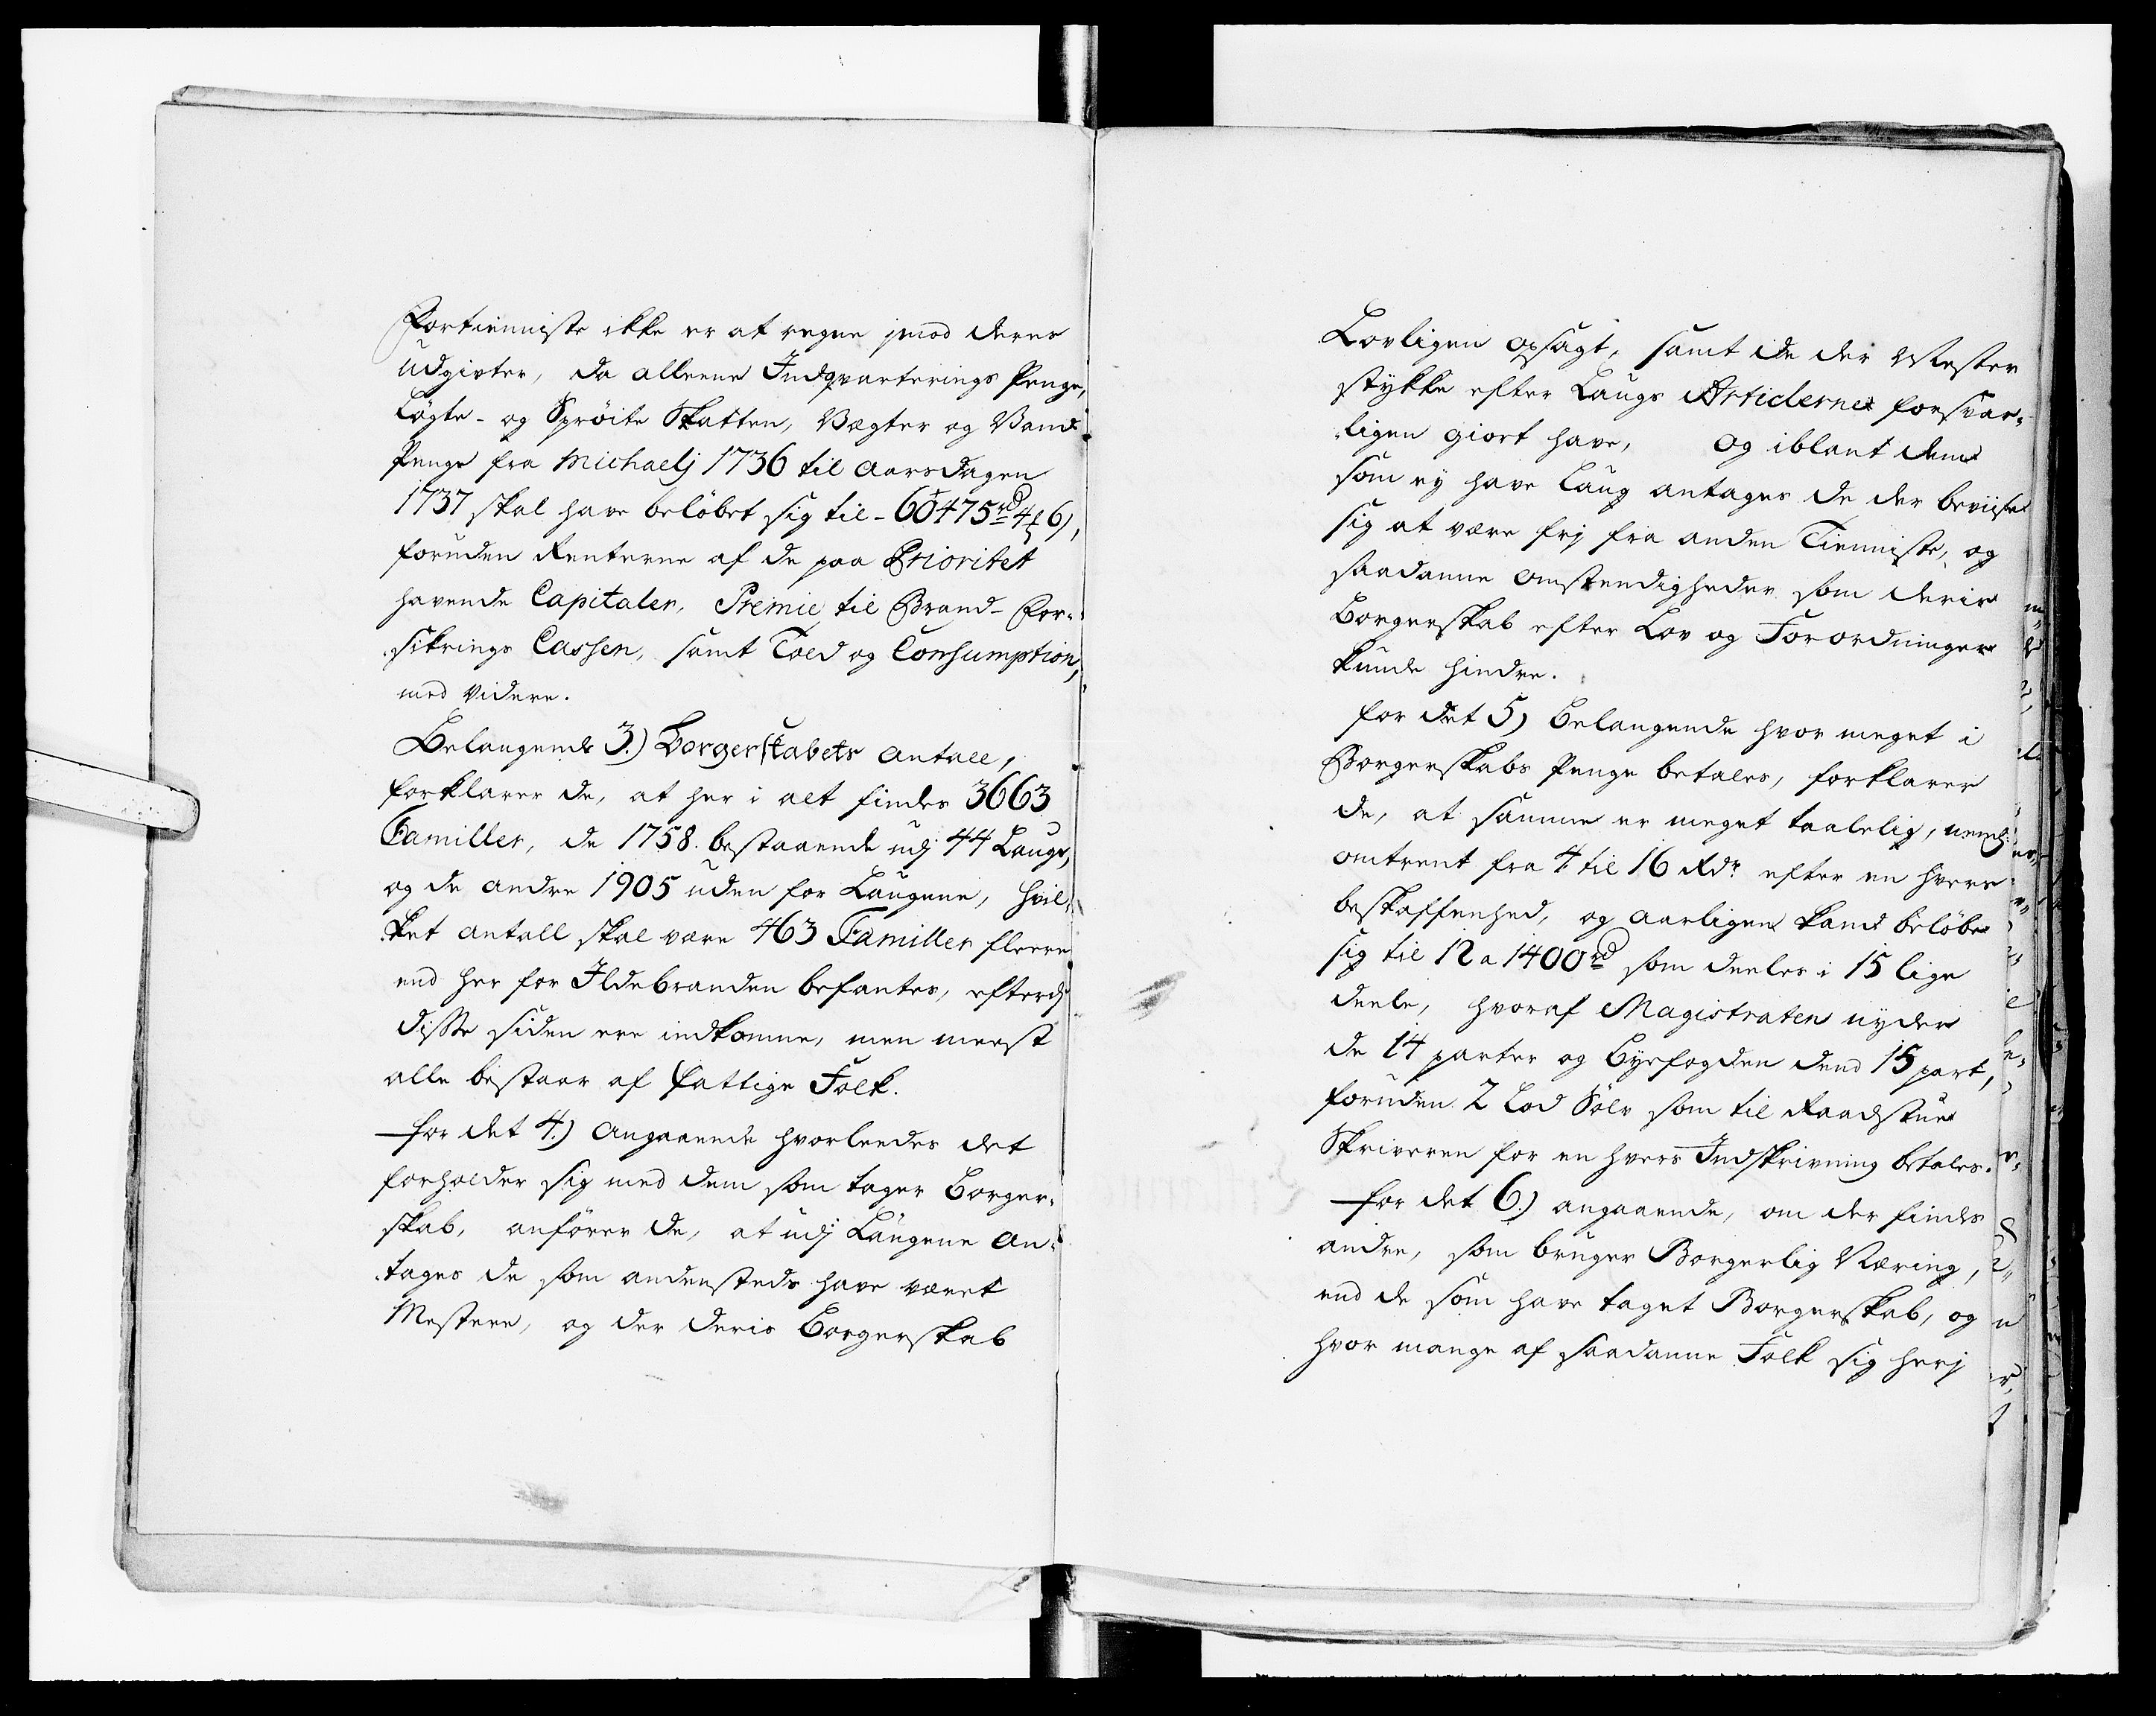 Fortienniste ikke er at regne imod deres
Udgivter, da alleene Indqvarterings Penge,
Lögte- og Spröite Skatten, Vægter og Vand
Penge fra Michaelj 1736 til Aarsdagen
1737 skal have belöbet sig til - 60475 rd 4 ß 6),
foruden Renterne af de paa Prioritet
havende Capitaler, Premie til Brand-For-
sikrings Cassen, samt Told og Consumption,
med Videre.
Belangende 3.) Borgerskabets Antall,
forklarer de, at her i alt findes 3663
Familler, de 1758 bestaaende udj 44 Lauge,
og de andre 1905 uden for Laugene, hvil-
ket antall skal være 463 Familler fleere
end her for Ildebranden befantes, efterdj
disse siden ere indkomne, men meest
alle bestaar af fattige Folk.
for det 4.) Angaaende hvorleedes det
forholder sig med dem som tager Borger-
skab, anförer de, at udj Laugene an-
tages de som andensteds have været
Mestere, og der deris Borgerskab
Lovligen opsagt, samt de der Mester
stykke efter Laugs Articlerne forsvar-
ligen giort have, og iblant dem
som ej have Laug antages de der beviise
sig at være frj fra anden Tienniste, og
saadanne Omstendigheder som deris
Borgerskab efter Lov og Forordninger
kunde hindre.
for det 5) Belangende hvor meget i
Borgerskabs Penge betales, forklarer
de, at samme er meget taalelig, nemlig
omtrent fra 4 til 16 Rdr efter en hvers
beskaffenhed, og Aarligen kand belöbe
sig til 12 a 1400 rd som deeles i 15 lige
deele, hvoraf Magistraten nyder
de 14 parter og Byefogden dend 15 part,
foruden 2 Lod Sölv som til Raadstue
Skriveren for en hvers Indskrivning betales.
for det 6.) angaaende, om der findes
andre, som bruger Borgerlig Næring,
end de som have taget Borgerskab, og
hvor mange af saadanne Folk sig herj